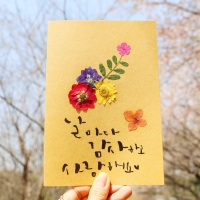 날마다
감사하고
사랑해요